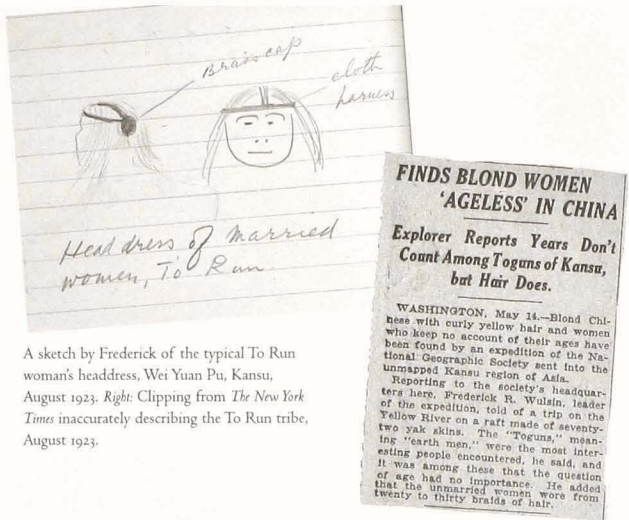 Brass cap
cloth
harness
Head dress of married
women, To Run
A sketch by Frederick of the typical To Run
woman's headdress, Wei Yuan Pu, Kansu,
August 1923. Right: Clipping from The New York
Times inaccurately describing the To Run tribe,
August 1923.
FINDS BLOND WOMEN
'AGELESS' IN CHINA
Explorer Reports Years Don't
Count Among Toguns of Kansu,
but Hair Does.
WASHINGTON, May 14.—Blond Chi-
nese with curly yellow hair and women
who keep no account of their ages have
been found by an expedition of the Na-
tional Geographic Society sent into the
unmapped Kansu region of Asia.
Reporting to the society's headquar-
ters here, Frederick R. Wulsin, leader
of the expedition, told of a trip on the
Yellow River on a raft made of seventy-
two yak skins. The "Toguns," mean-
ing "earth men," were the most inter-
esting people encountered, he said, and
it was among these that the question
of age had no importance. He added
that the unmarried women wore from
twenty to thirty braids of hair.